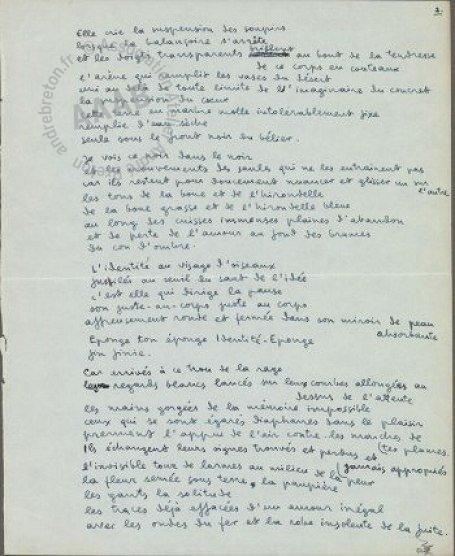 2.
Elle crie la suspension des soupirs
lorsque la balançoire s'arrête
et les doigts transparents brillent au bout de la tendresse
de ce corps en couteaux
l'arène qui emplit les vases du désert
uni au delà de toute limite de l'imaginaire du concret
la du cœur
cette terre en marbre molle intolérablement fixe
remplie d'eau sèche
seule sous le front noir du bélier.
Je vois ce noir dans le noir
et les mouvements des saules qui ne les entraînent pas
car ils restent pour doucement nuancer et glisser un sur
l'autre
les tons de la boue et de l'hirondelle
de la boue grasse et de l'hirondelle bleue
au long des cuisses immenses plaines d'abandon
et de perte de l'amour au fond des brumes
du con d'ombre.
L'identité au visage d'oiseaux
fusillés au seuil du saut de l'idée
c'est elle qui dirige la pause
son juste-au-corps juste au corps
affreusement ronde et fermée dans son miroir de peau
absorbante
Eponge ton éponge Identité-Eponge
fin finie.
Car arrivés à ce trou de la rage
leurs regards blancs lancés sur leurs courbes allongées au
dessus de l'attente
les mains gorgées de la mémoire impossible
ceux qui se sont égarés diaphanes dans le plaisir
prennent l'appui de l'air contre les marches de
tes plaines.
Ils échangent leurs signes trouvés et perdus et
jamais appropriés
l'invisible tour de larmes au milieu de la peur
la fleur semée sous terre, la paupière
les gants la solitude
les traces déjà effacées d'un amour inégal
avec les ondes du fer et la robe insolente de la fuite.
andrebreton.fr